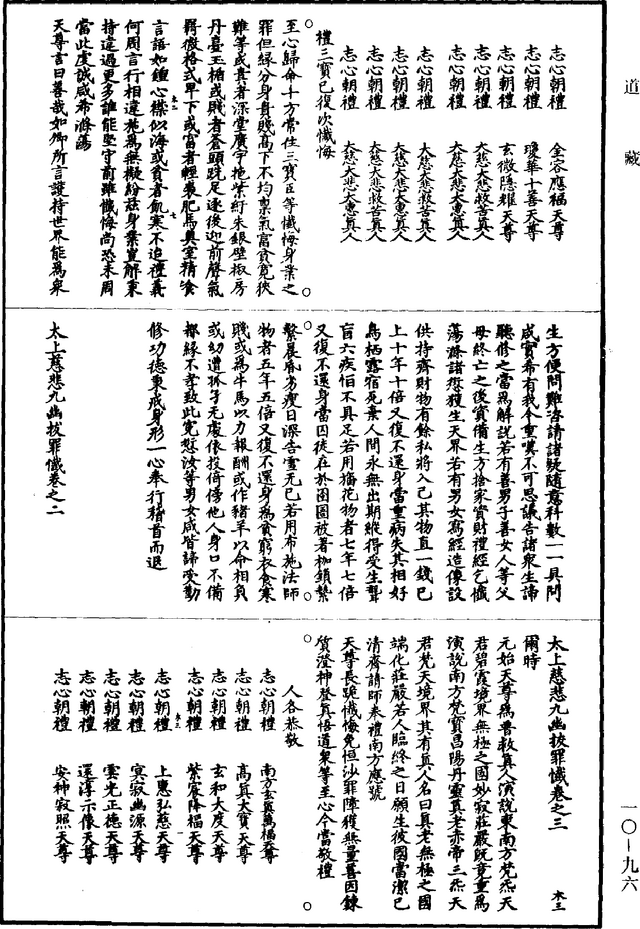 道藏
志心朝禮　金容應福天尊
志心朝禮　瓊華十善天尊
志心朝禮　玄微隱耀天尊
志心朝禮　大慈大悲救苦真人
志心朝禮　大慈大悲大惠真人
志心朝禮　大慈大悲救苦真人
志心朝禮　大慈大悲大惠真人
志心朝禮　大慈大悲救苦真人
志心朝禮　大慈大悲大惠真人
禮三寶已復次懺悔
至心歸命十方常住三寶臣等懺悔身業之
罪但緣分身貴賤高下不均稟氣富貧寬狹
難等或貴者深堂廣宇拖紫紆朱銀壁椒房
丹臺玉楯或賤者蒼頭跣足逐後迎前聲氣
羇微格式卑下或富者輕裘肥馬奧室精飡
言語如鍾心襟似海或貧者飢寒不迨禮義
何周言行相違施為無擬紛茲身業豈解東
持違過更多誰能堅守前雖懺悔尚恐未周
當此虔誠咸希滌蕩
天尊言曰善哉如卿所言護持世界能為衆
生方便問難咨請諸疑隨意科數一一具問
咸實希有我今重嘆不可思議告諸衆生諦
聽修之當為解說若有善男子善女人等父
母終亡之後實備生方捨家資財禮經乞懺
蕩滌諸愆獲生天界若有男女寫經造像設
供持齋財物有餘私將入己其物直一錢已
上十年十倍又復不還身當重病失其相好
鳥栖露宿死棄人間永無出期縱得受生聾
盲六疾怕不具足若用搞花物者七年七倍
又復不還身當囚徒在於囹圄被著枷鎖縶
繫晨昏劣瘦日深告雪无已若用布施法師
物者五年五倍又復不還身為貧窮衣食寒
賤或為牛馬以力報酬或作豬羊以命相負
或幼遭抓子无處依投倚傍他人身口不備
都緣不孝致此寃愆汝等男女咸皆諦受勤
修功德束戒身形一心奉行稽首而退
太上慈悲九幽拔罪懺卷之二
太上慈悲九幽拔罪懺卷之三　木三
爾時
元始天尊為普救真人演說東南方梵炁天
君碧霞境界無極之國妙寂莊嚴既竟重為
演說南方梵寶昌陽丹靈真老赤帝三炁天
君梵天境界其有真人名曰真老無極之國
端化莊嚴若人臨終之日願生彼國當潔已
清齋請師奉禮南方應號
天尊長跪懺悔免恒沙罪障獲無量善因鍊
質澄神登真悟道衆等至心今當敬禮
人各恭敬
志心朝禮　南方玄真萬福天尊
志心朝禮　高真大寶天尊
志心朝禮　玄和大度天尊
志心朝禮　紫寥降福天尊
志心朝禮　上惠弘慈天尊
志心朝禮　冥寂幽源天尊
志心朝禮　雲光正德天尊
志心朝禮　還淳示像天尊
志心朝禮　安神寂照天尊
一〇－九六